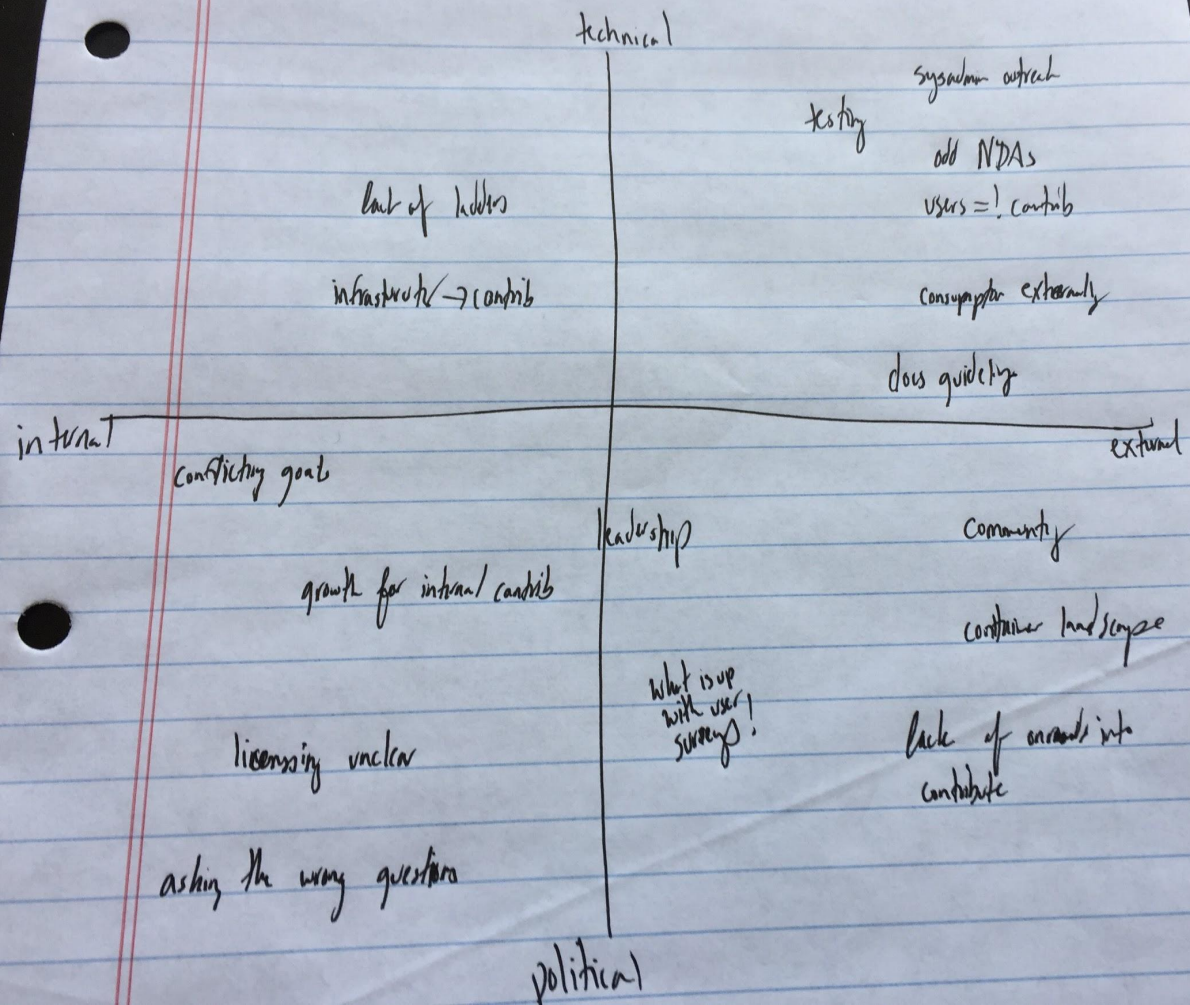 technical
sysadmin outreach
testing
odd NDAs
lack of ladders
users =! contrib
→ contrib
consumption externally
docs
internal
external
conflicting goals
leadership
Community
growth for internal contrib
container landscape
what is up
with user
surveys!
licensing unclear
lack of into
contribute
asking the wrong questions
political